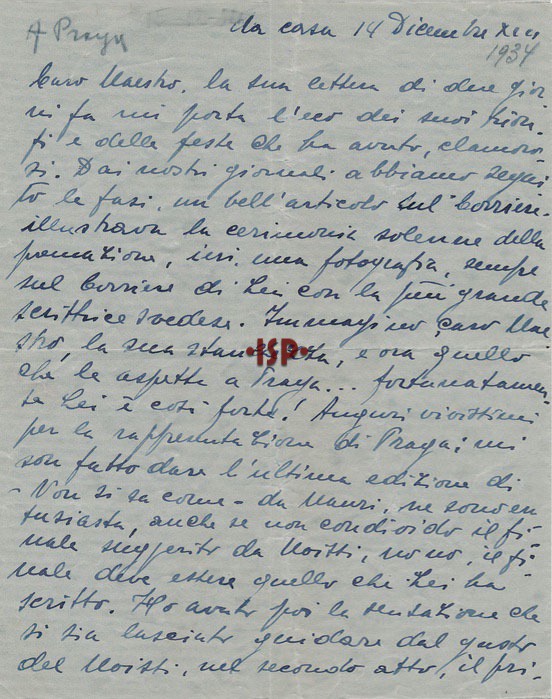 A Praga
Da casa 14 Dicembre XIII
1934
Caro Maestro, la sua lettera di due gior
ni fa mi porta l'eco dei suoi trion-
fi e delle feste che ha avuto, clamoro
si. Dai nostri giornali abbiamo segui
to le fasi, un bell'articolo sul Corriere
illustrava la cerimonia solenne della
premiazione, ieri una fotografia, sempre
sul Corriere di Lei con la più grande
scrittrice svedese. Immagino, caro Mae
stro, la sua stanchezza, e ora quello
·ISP·
che la aspetta a Praga... fortunatamen-
te Lei è così forte! Auguri vivissimi
per la rappresentazione di Praga; mi
son fatto dare l'ultima edizione di
- Non si sa come - da Mauri, ne sono en
tusiasta, anche se non condivido il fi-
nale suggerito da Moissi, no no, il fi-
nale deve essere quello che Lei ha
scritto. Ho avuto poi la sensazione che
si sia lasciato guidare dal gusto
del Moissi, nel secondo atto, il pri-